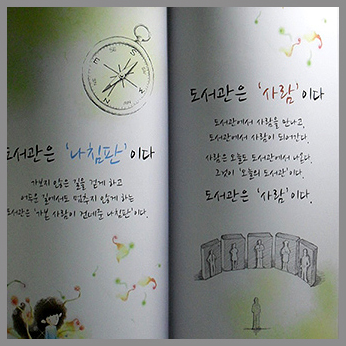 도서관은 '나침판'이다
가보지 않은 길을 걷게 하고
어두운 길에서도 멈추지 않게 하는
도서관은 '가본 사람이 건네준 나침판'이다.
도서관은 '사람'이다
도서관에서 사람을 만나고,
도서관에서 사람이 되어간다.
사람은 오늘도 도서관에서 나온다.
그것이 '오늘의 도서관'이다.
도서관은 '사람'이다.